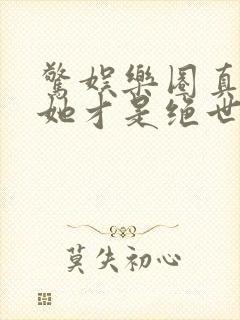 驚娱樂圈真
她才是绝世
莫失初心